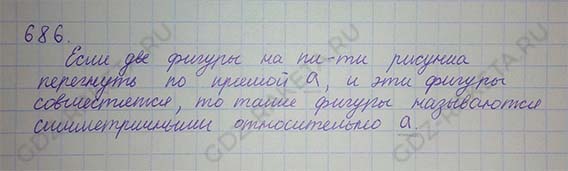 686.
Если две фигуры на пл-ти рисунка
перегнуть по прямой a, и эти фигуры
совместятся, то такие фигуры называются
симметричными относительно a.
GDZ-RAKETA.RU